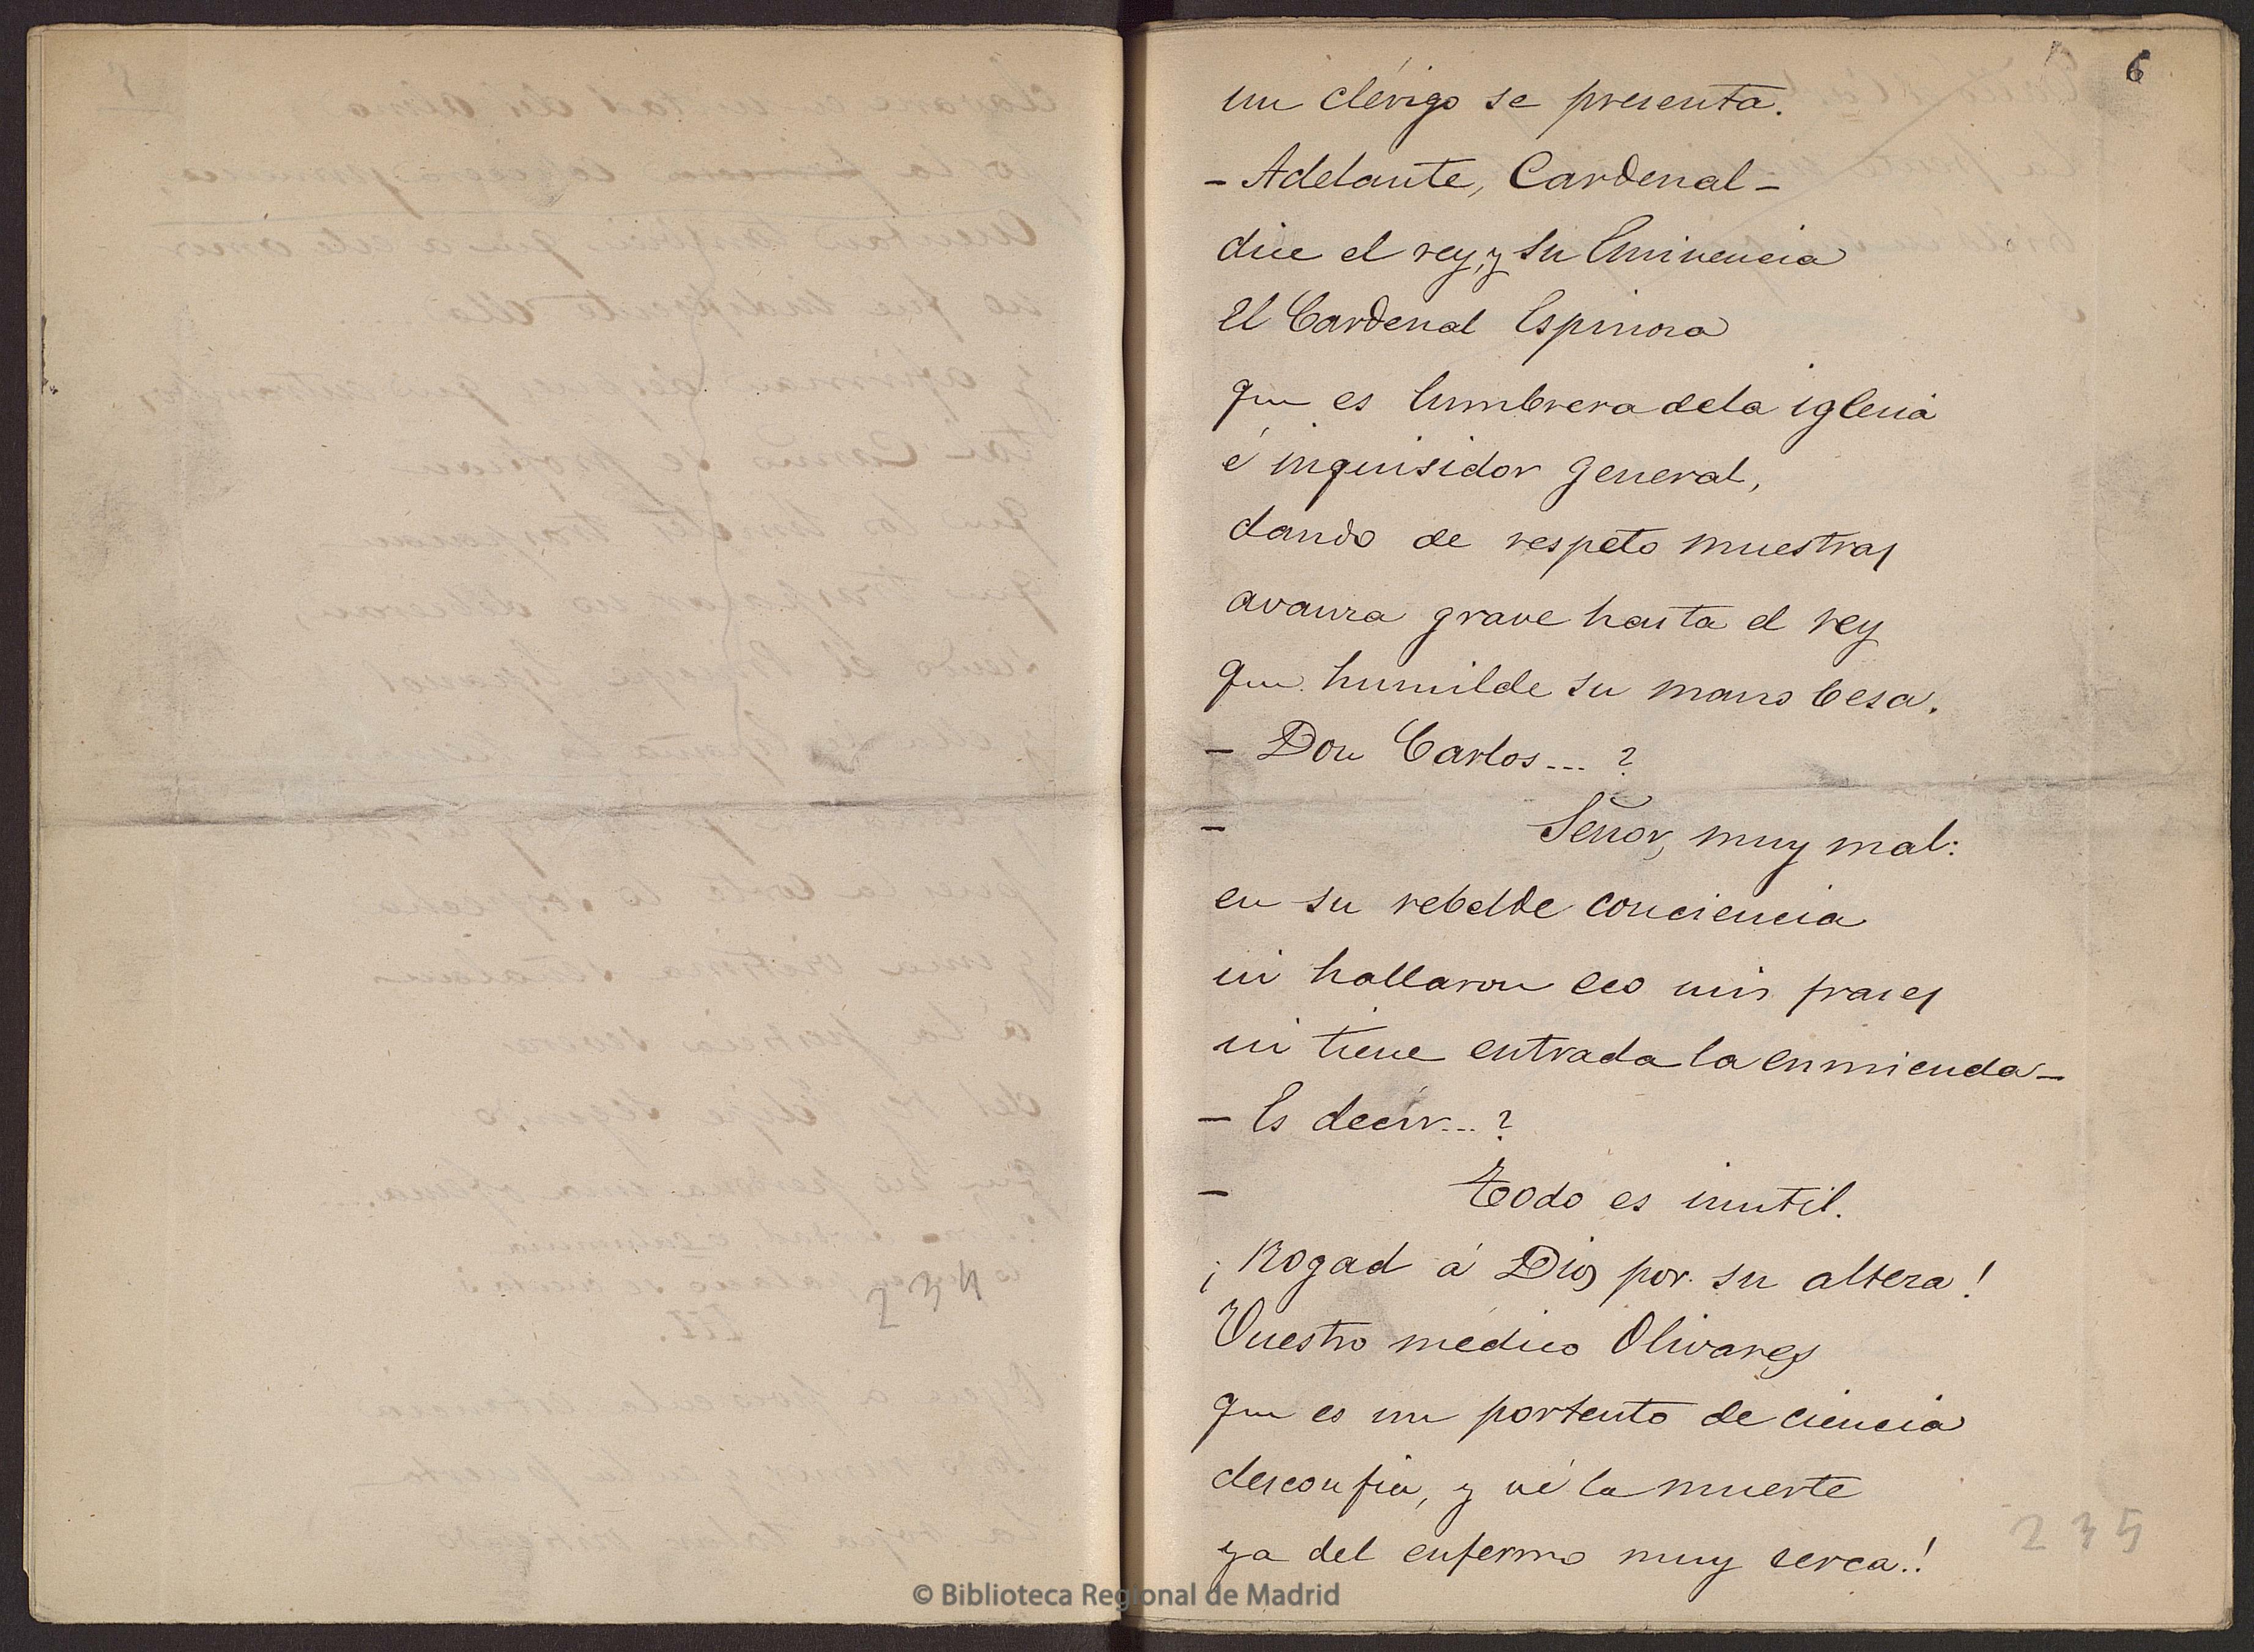 234
6
un clérigo se presenta.
- Adelante, Cardenal -
dice el rey, y su Eminencia
El Cardenal Espinosa
que es lumbrera de la iglesia
é inquisidor general,
dando de respeto muestras
avanza grave hasta el rey
que humilde su mano besa.
- Don Carlos... ?
- Señor, muy mal:
en su rebelde conciencia
ni hallaron eco mis frases
ni tiene entrada la enmienda -
- Es decir... ?
- Todo es inutil.
¡Rogad á Dios por su alteza!
Vuestro médico Olivares
que es un portento de ciencia
desconfia, y vé la muerte
ya del enfermo muy cerca.!
235
© Biblioteca Regional de Madrid